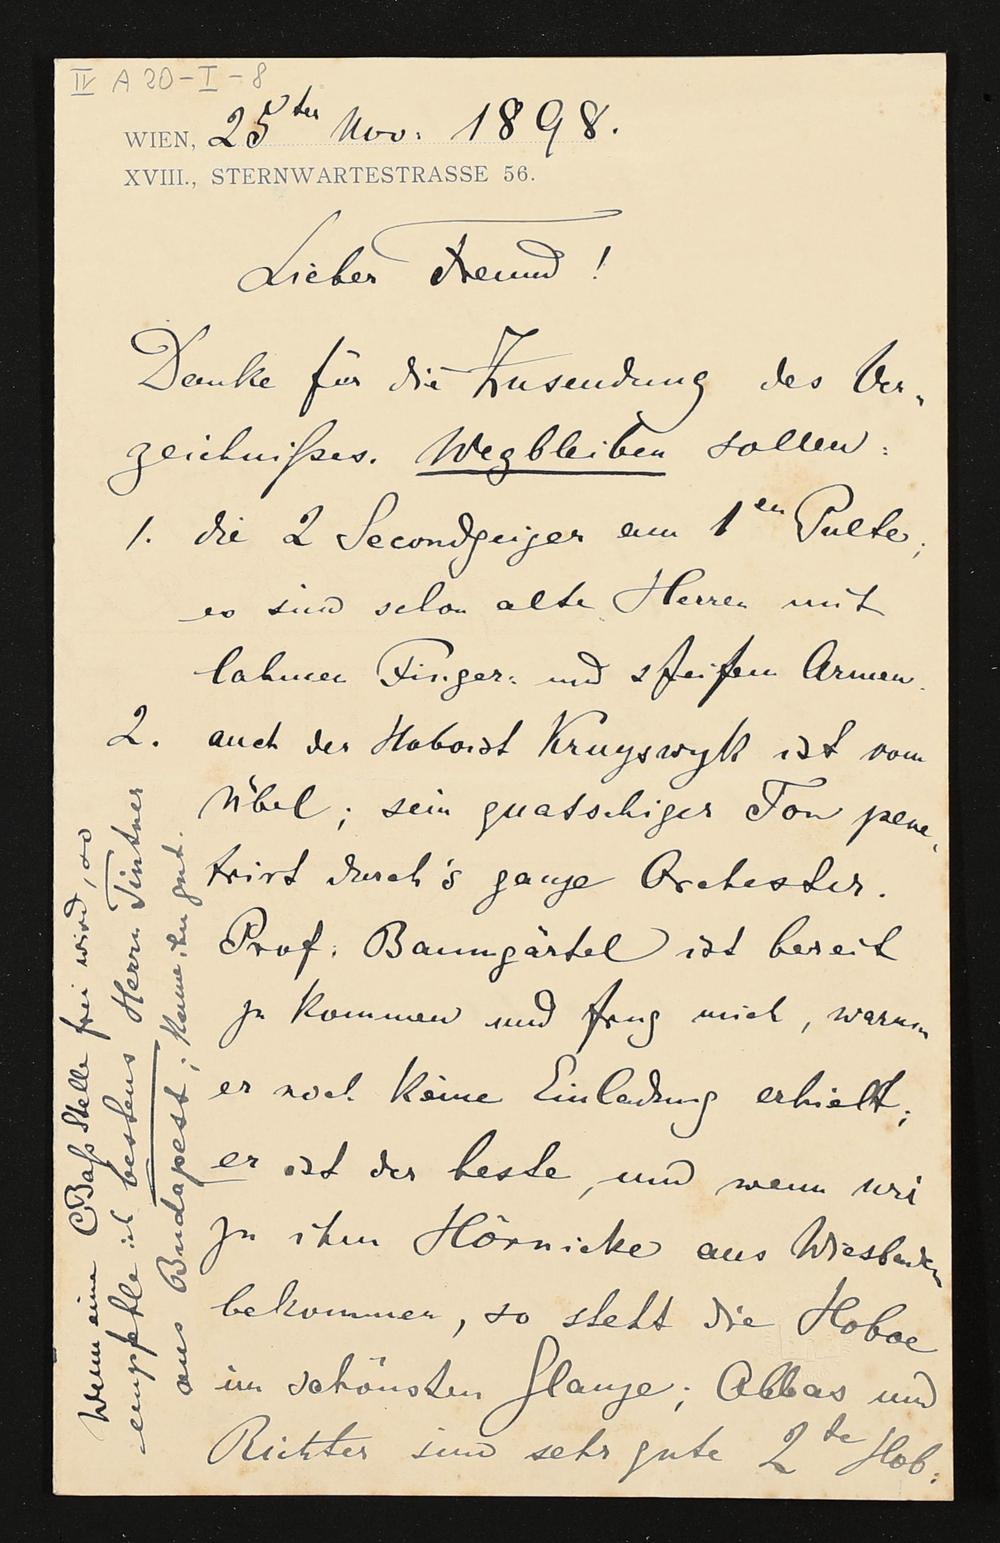 IV A 20-I-8
WIEN, 25ten Nov. 1898.
XVIII., STERNWARTESTRASSE 56.
Lieber Freund!
Danke für die Zusendung des Ver-
zeichnißes. Wegbleiben sollen:
1. die 2 Secondgeiger am 1en Pulte;
es sind schon alte Herren mit
lahmen Finger: und steifen Armen.
2. auch der Hoboist Kruyswyk ist vom
Übel; sein quatschiger Ton pene-
trirt durch's ganze Orchester.
Prof. Baumgärtel ist bereit
zu kommen und frug mich, warum
er noch keine Einladung erhielt;
er ist der beste, und wenn wir
zu ihm Hörnicke aus Wiesbaden
bekommen, so steht die Hoboe
im schönsten Glanze; Abbas und
Richter sind sehr gute 2te Hob:
Wenn eine CBaß Stelle frei wird, so
empfehle ich bestens Herrn Tintner
aus Budapest; kenne ihn gut.